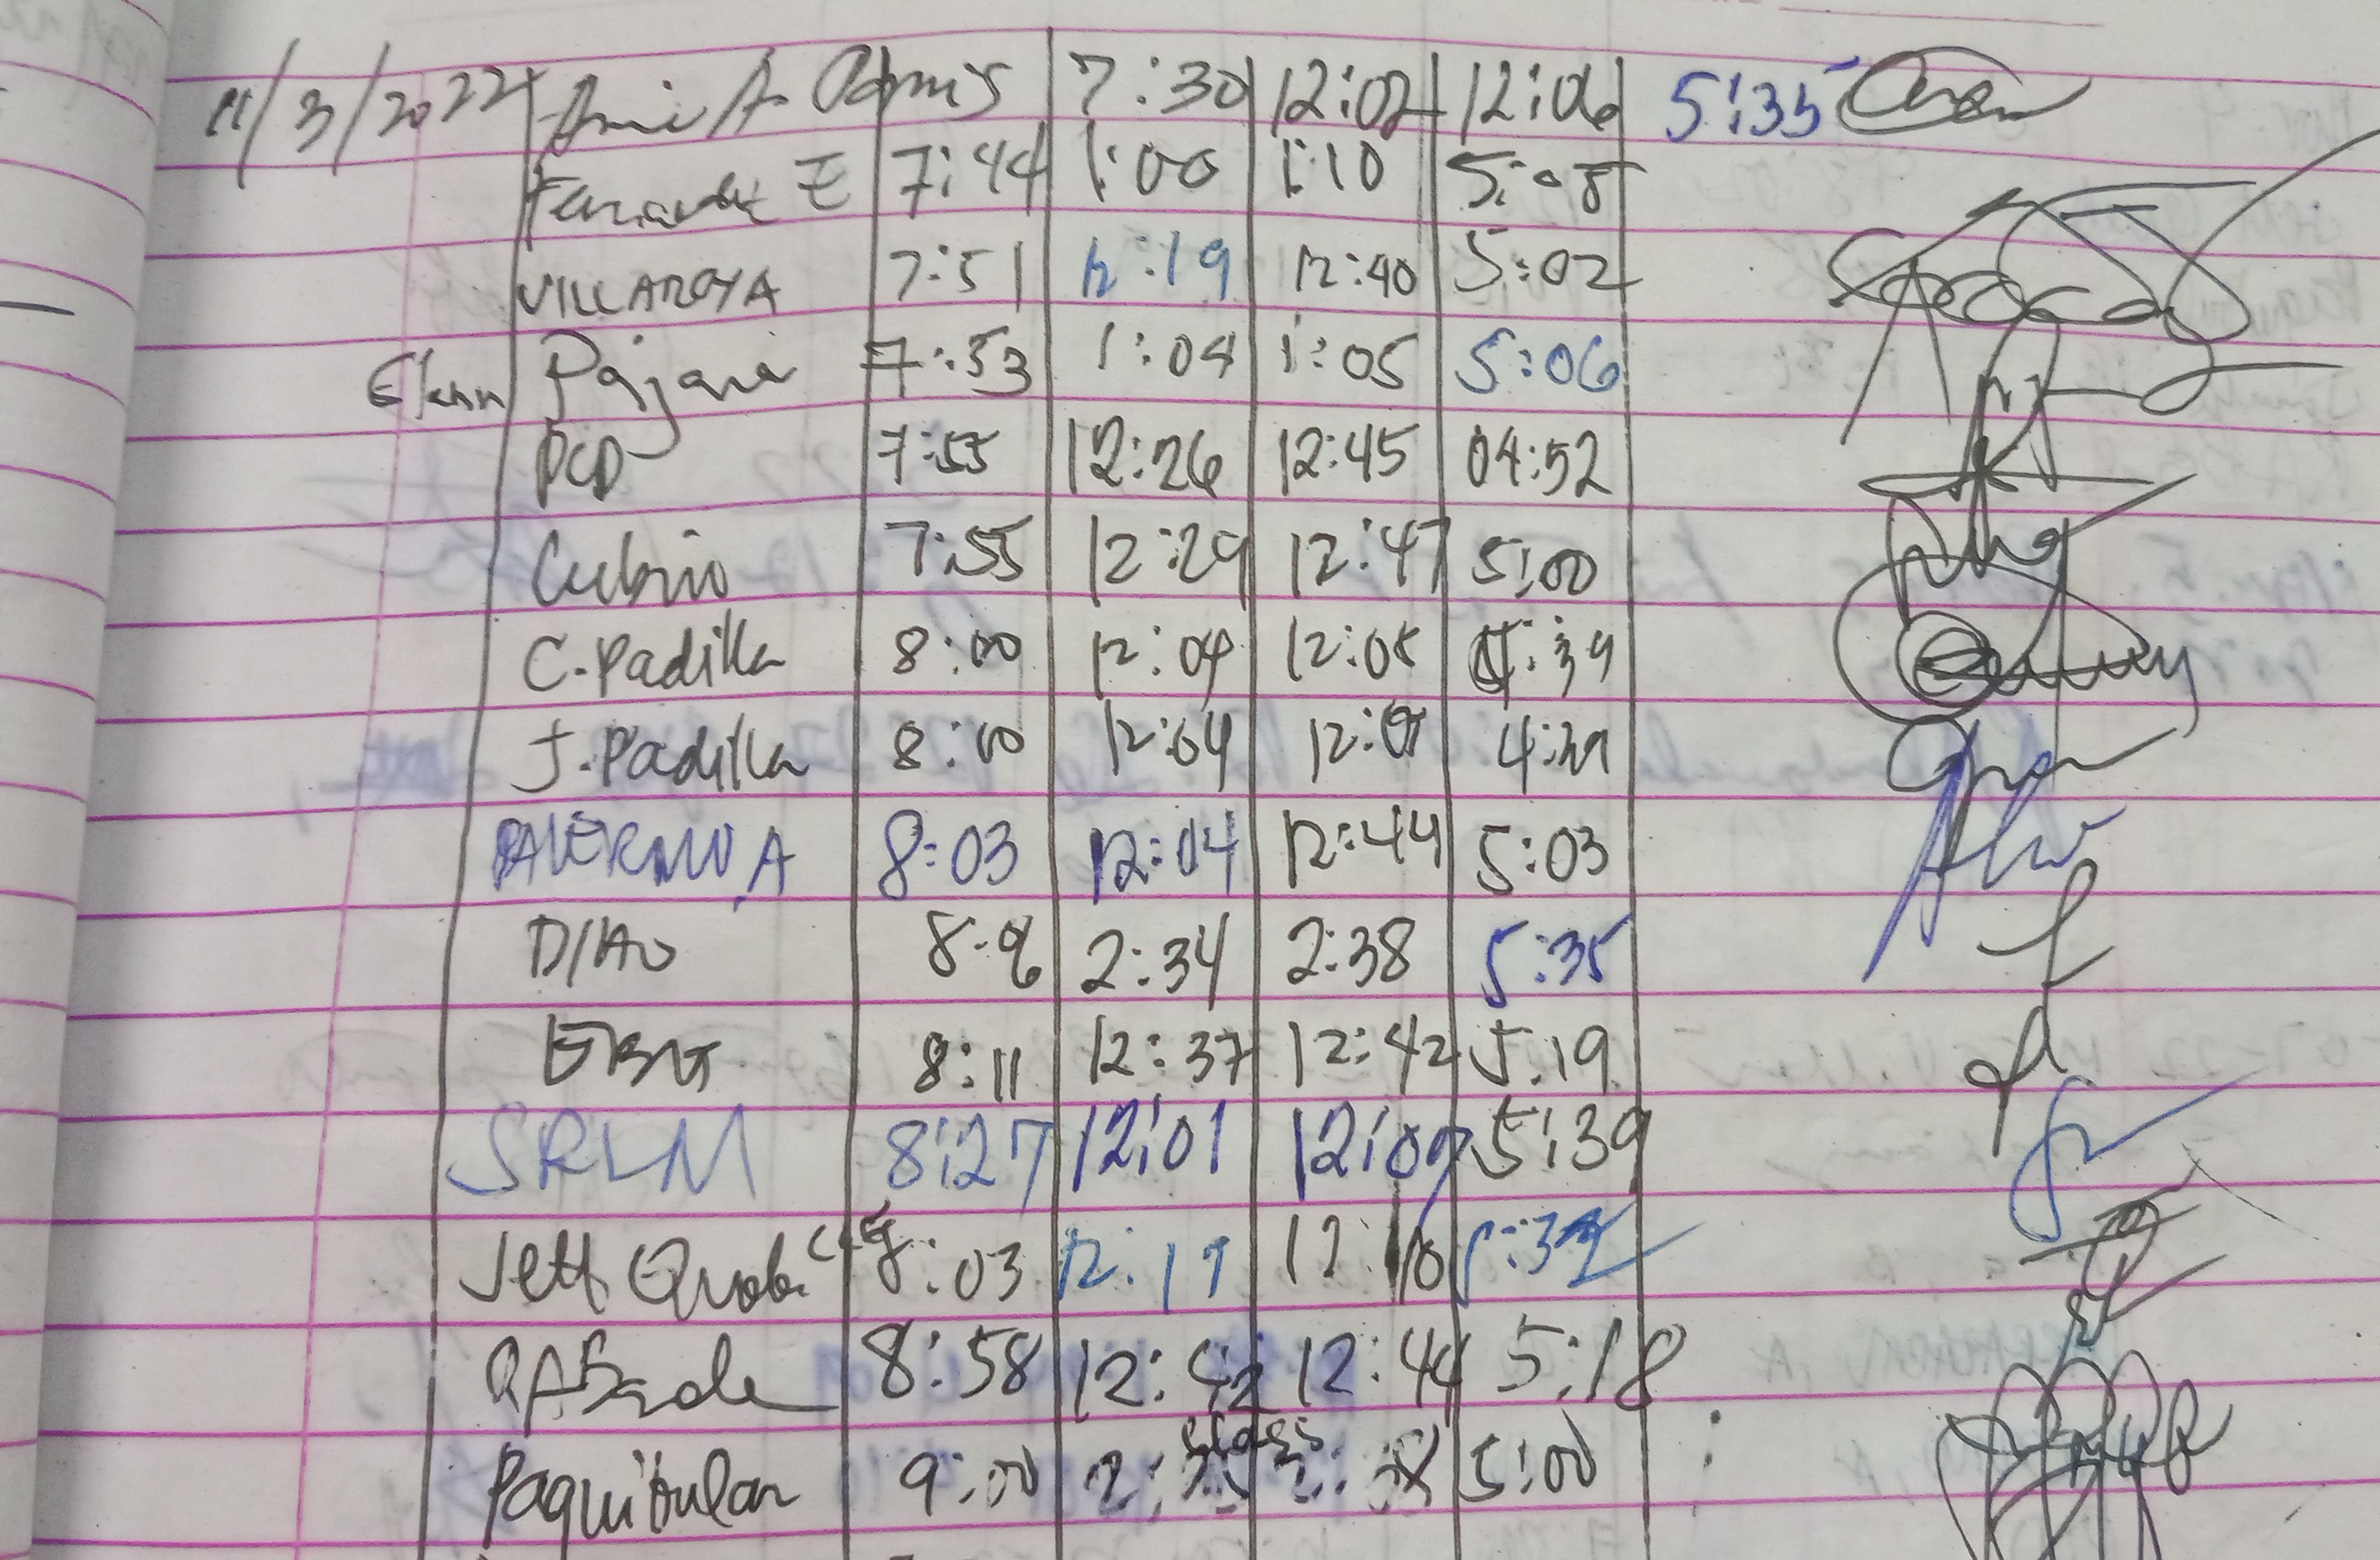 11/3/2022 A. 7:30 12:02 12:06 5:35
Fernandez E 7:44 1:00 1:10 5:08
VILLAROYA 7:51 12:19 12:40 5:02
Elenn Pajara 7:53 1:04 1:05 5:06
PCD 7:55 12:26 12:45 04:52
Cubio 7:55 12:29 12:47 5:00
C. Padilla 8:00 12:04 12:05 :39
J. Padilla 8:00 12:04 4:39
PALERMO, A 8:03 12:04 12:44 5:03
2:34 2:38 5:35
EBG 8:11 12:37 12:42 5:19
SRLM 8:27 12:01 12:07 5:39
Jett 8:03 12:17
8:58 12:42 12:44 5:18
Paquibulan 9:00 5:00